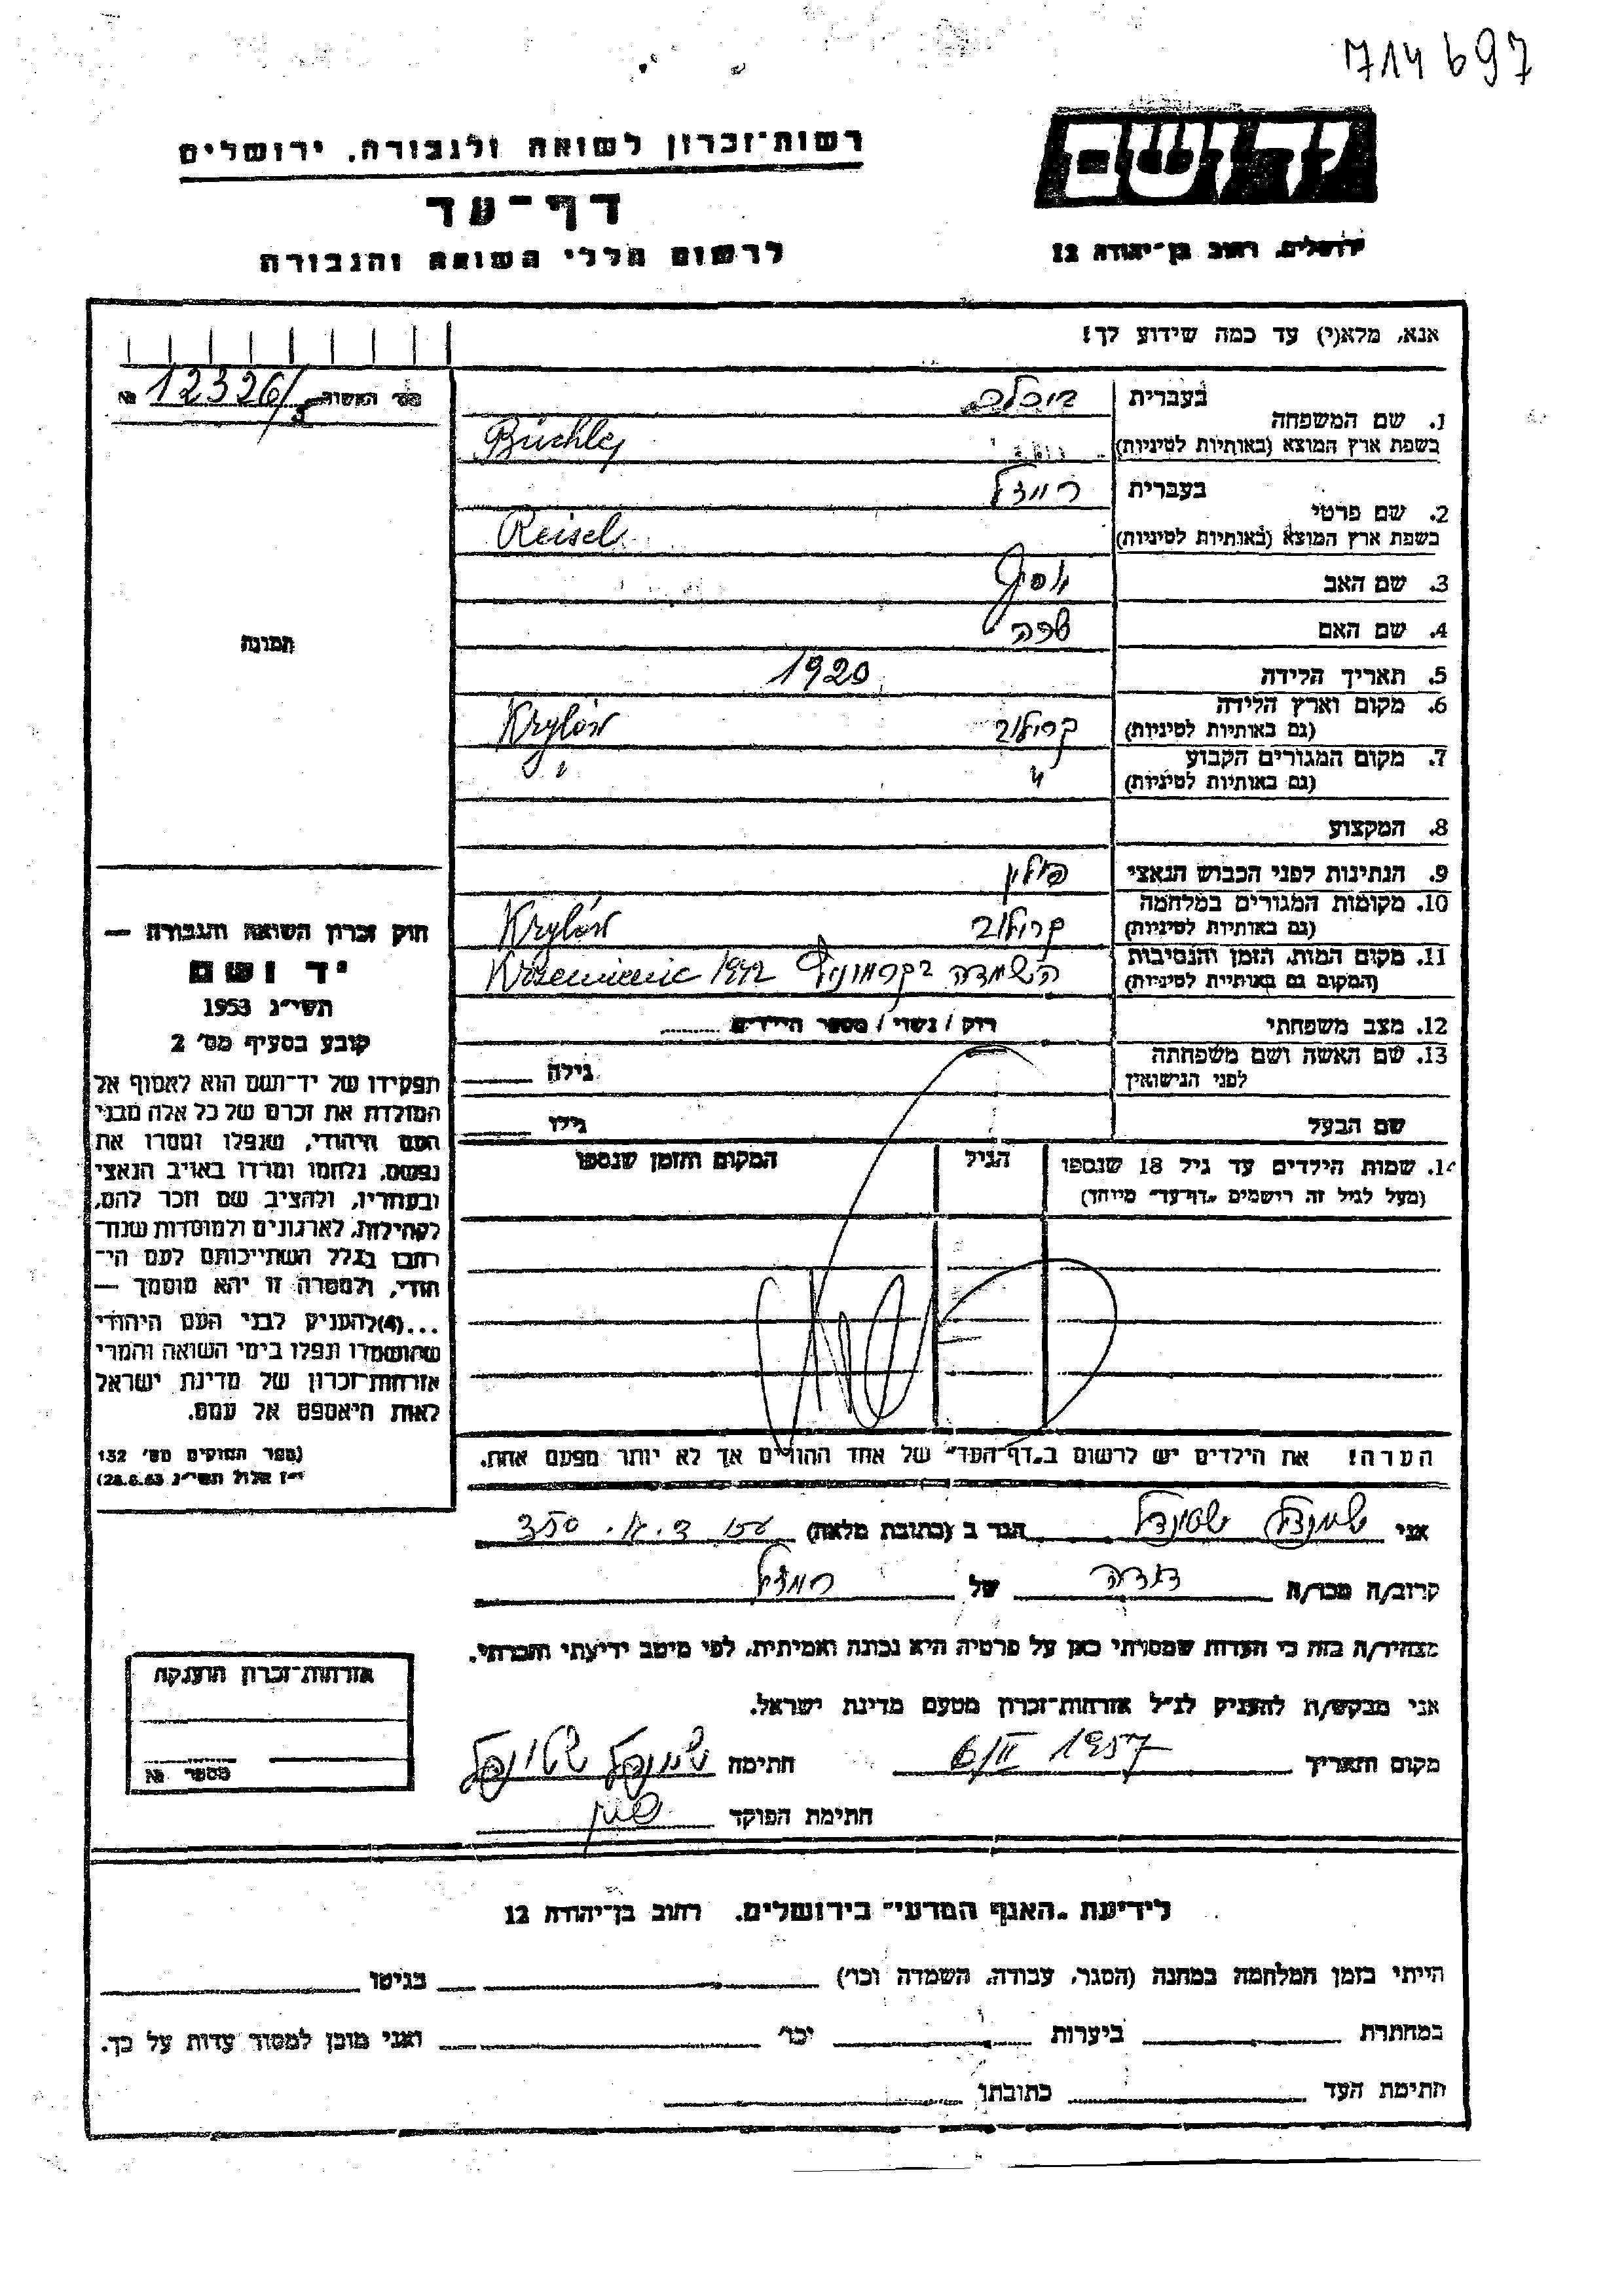 714697
רשות־זכרון לשואה ולגבורה, ירושלים
יד ושם
דף־עד
ירושלים, רחוב בן־יהודה 12
לרשום חללי השואה והגבורה
אנא, מלא(י) עד כמה שידוע לך!
מס׳ האשור 12326/5 №
1. שם המשפחה
בעברית
בשפת ארץ המוצא (באותיות לטיניות) Büchler
2. שם פרטי
בעברית רייזל
בשפת ארץ המוצא (באותיות לטיניות) Reisel
3. שם האב יוסף
4. שם האם שרה
5. תאריך הלידה 1920
6. מקום וארץ הלידה
(גם באותיות לטיניות) קרילוב Krylów
7. מקום המגורים הקבוע
(גם באותיות לטיניות) " "
8. המקצוע
9. הנתינות לפני הכבוש הנאצי פולין
10. מקומות המגורים במלחמה
(גם באותיות לטיניות) קרילוב Krylów
11. מקום המות, הזמן והנסיבות
(המקום גם באותיות לטיניות) הושמדה Krzemieniec 1942
12. מצב משפחתי רוק / נשוי / מספר הילדים
13. שם האשה ושם משפחתה
לפני הנישואין גילה
שם הבעל גילו
14. שמות הילדים עד גיל 18 שנספו הגיל המקום והזמן שנספו
(מעל לגיל זה רישמים „דף־עד״ מיוחד)
הערה! את הילדים יש לרשום ב„דף־העד״ של אחד ההורים אך לא יותר מפעם אחת.
תמונה
חוק זכרון השואה והגבורה —
יד ושם
תשי״ג 1953
קובע בסעיף מס׳ 2
תפקידו של יד־ושם הוא לאסוף אל
המולדת את זכרם של כל אלה מבני
העם היהודי, שנפלו ומסרו את
נפשם, נלחמו ומרדו באויב הנאצי
ובעוזריו, ולהציב שם וזכר להם,
לקהילות, לארגונים ולמוסדות שנח־
רבו בגלל השתייכותם לעם הי־
הודי, ולמטרה זו יהא מוסמך —
...(4)להעניק לבני העם היהודי
שהושמדו ונפלו בימי השואה והמרי
אזרחות־זכרון של מדינת ישראל
לאות היאספם אל עמם.
(ספר החוקים מס׳ 132
י״ז אלול תשי״ג 28.8.53)
אני הגר ב (כתובת מלאה) ד.א. 350
קרוב/ה מכר/ה דודה של רייזל
מצהיר/ה בזה כי העדות שמסרתי כאן על פרטיה היא נכונה ואמיתית, לפי מיטב ידיעתי והכרתי.
אני מבקש/ת להעניק לנ״ל אזרחות־זכרון מטעם מדינת ישראל.
מקום ותאריך 6/II 1957 חתימה
חתימת הפוקד
אזרחות־זכרון הוענקה
מספר №
לידיעת „האגף המדעי״ בירושלים, רחוב בן־יהודה 12
הייתי בזמן המלחמה במחנה (הסגר, עבודה, השמדה וכו׳) בגיטו
במחתרת ביערות וכו׳ ואני מוכן למסור עדות על כך.
חתימת העד כתובתו